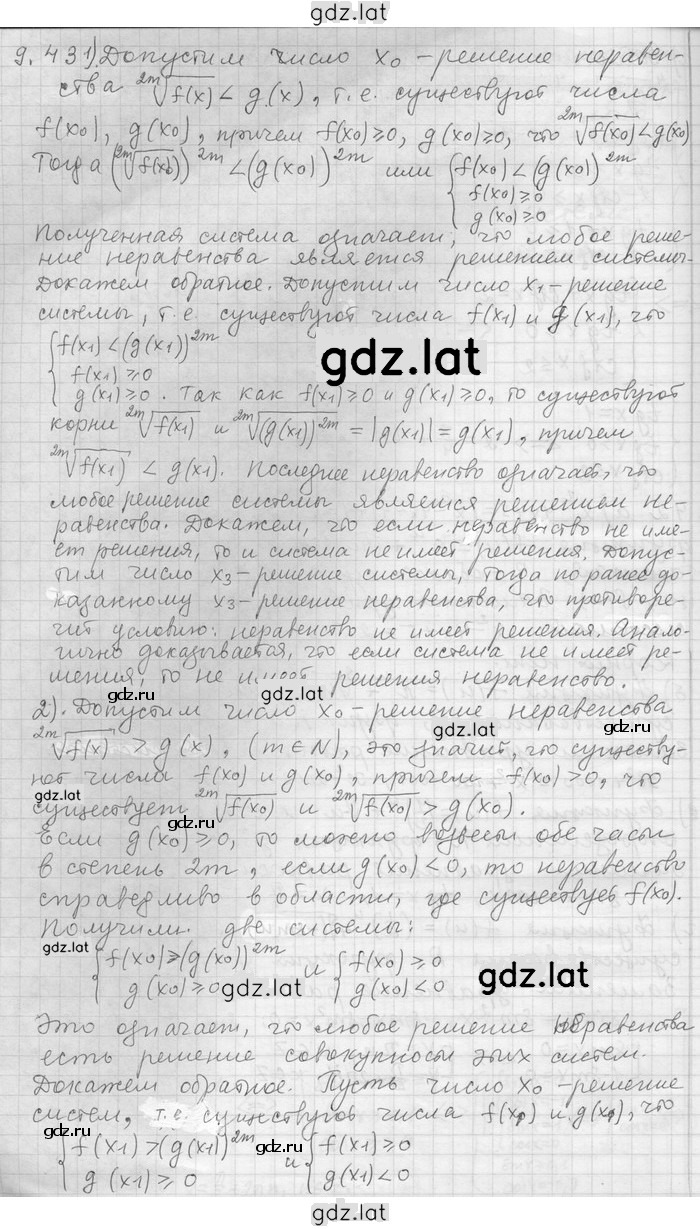 gdz.lat
9.43 1) Допустим число x₀ - решение неравен-
ства ²ᵐ√f(x) < g(x), т.е. существуют числа
f(x₀), g(x₀), причем f(x₀)≥0, g(x₀)≥0, что ²ᵐ√f(x₀) < g(x₀)
Тогда (²ᵐ√f(x₀))²ᵐ < (g(x₀))²ᵐ или { f(x₀) < (g(x₀))²ᵐ
f(x₀)≥0
g(x₀)≥0
Полученная система означает, что любое реше-
ние неравенства является решением системы.
Докажем обратное. Допустим число x₁ - решение
системы, т.е. существуют числа f(x₁) и g(x₁), что
{ f(x₁) < (g(x₁))²ᵐ
f(x₁)≥0
gdz.lat
g(x₁)≥0. Так как f(x₁)≥0 и g(x₁)≥0, то существуют
корни ²ᵐ√f(x₁) и ²ᵐ√(g(x₁))²ᵐ = |g(x₁)| = g(x₁), причем
²ᵐ√f(x₁) < g(x₁). Последнее неравенство означает, что
любое решение системы является решением не-
равенства. Докажем, что если неравенство не име-
ет решения, то и система не имеет решения. Допус-
тим число x₃ - решение системы, тогда по ранее до-
казанному x₃ - решение неравенства, что противоре-
чит условию: неравенство не имеет решения. Анало-
гично доказывается, что если система не имеет ре-
шения, то не имеет решения неравенство.
gdz.lat
gdz.lat
2). Допустим число x₀ - решение неравенства
²ᵐ√f(x) > g(x), (m∈N), это значит, что существу-
ют числа f(x₀) и g(x₀), причем f(x₀)>0, что
gdz.lat
существует ²ᵐ√f(x₀) и ²ᵐ√f(x₀) > g(x₀).
gdz.lat
Если g(x₀)≥0, то можно возвести обе части
в степень 2m, если g(x₀)<0, то неравенство
справедливо в области, где существует f(x₀).
Получили две системы:
gdz.lat
{ f(x₀)≥(g(x₀))²ᵐ и { f(x₀)≥0
g(x₀)≥0 g(x₀)<0
gdz.lat
gdz.lat
Это означает, что любое решение неравенства
есть решение совокупности этих систем.
Докажем обратное. Пусть число x₀ - решение
систем, т.е. существуют числа f(x₁) и g(x₁), что
{ f(x₁)>(g(x₁))²ᵐ и { f(x₁)≥0
g(x₁)≥0 g(x₁)<0
gdz.lat
gdz.lat
gdz.lat